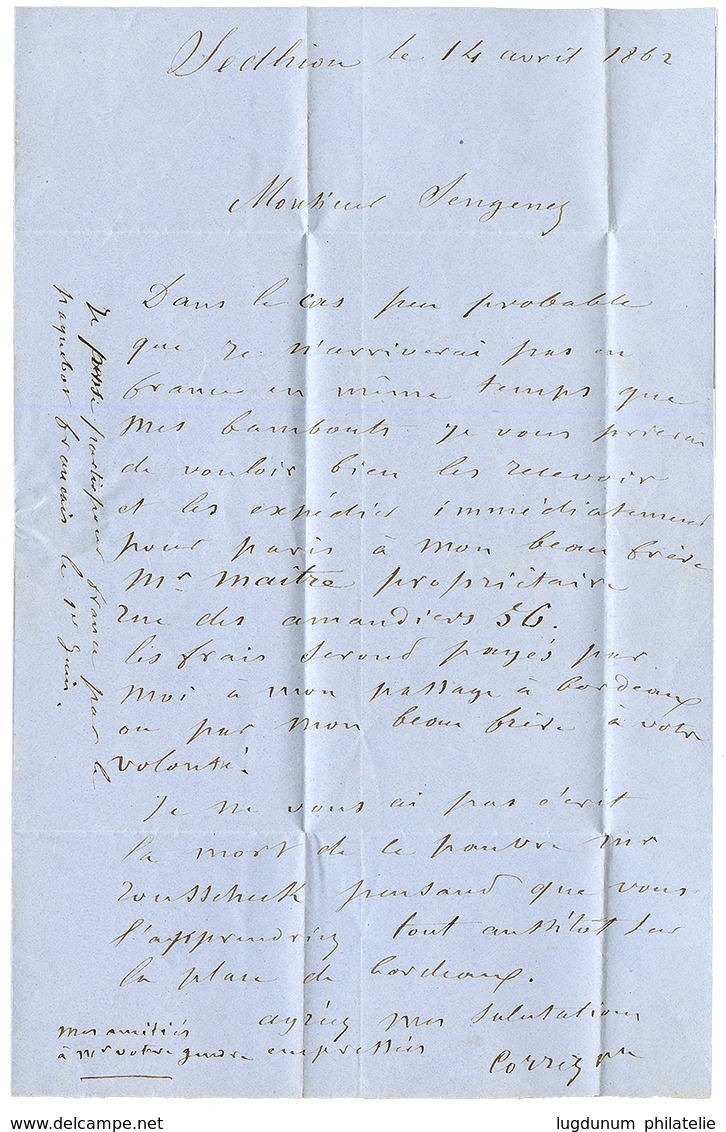 Sedhiou le 14 avril 1862
Monsieur Sengenez
Dans le cas peu probable
que je n'arriverai pas en
france en même temps que
mes bambouts je vous prierai
de vouloir bien les recevoir
et les expédier immédiatement
pour paris à mon beau frère
Mr maître propriétaire
rue des amandiers 56.
les frais seront payés par
moi à mon passage à bordeaux
ou par mon beau frère à votre
volonté.
Je ne vous ai pas écrit
la mort de ce pauvre mr
pensand que vous
l'apprendriez tout aussitôt sur
la place de bordeaux.
agréez mes salutations
empressées
mes amitiés
à Mr votre gendre
Je pense partir pour france par le
paquebot francais le 1er juin.
lugdunum philatelie